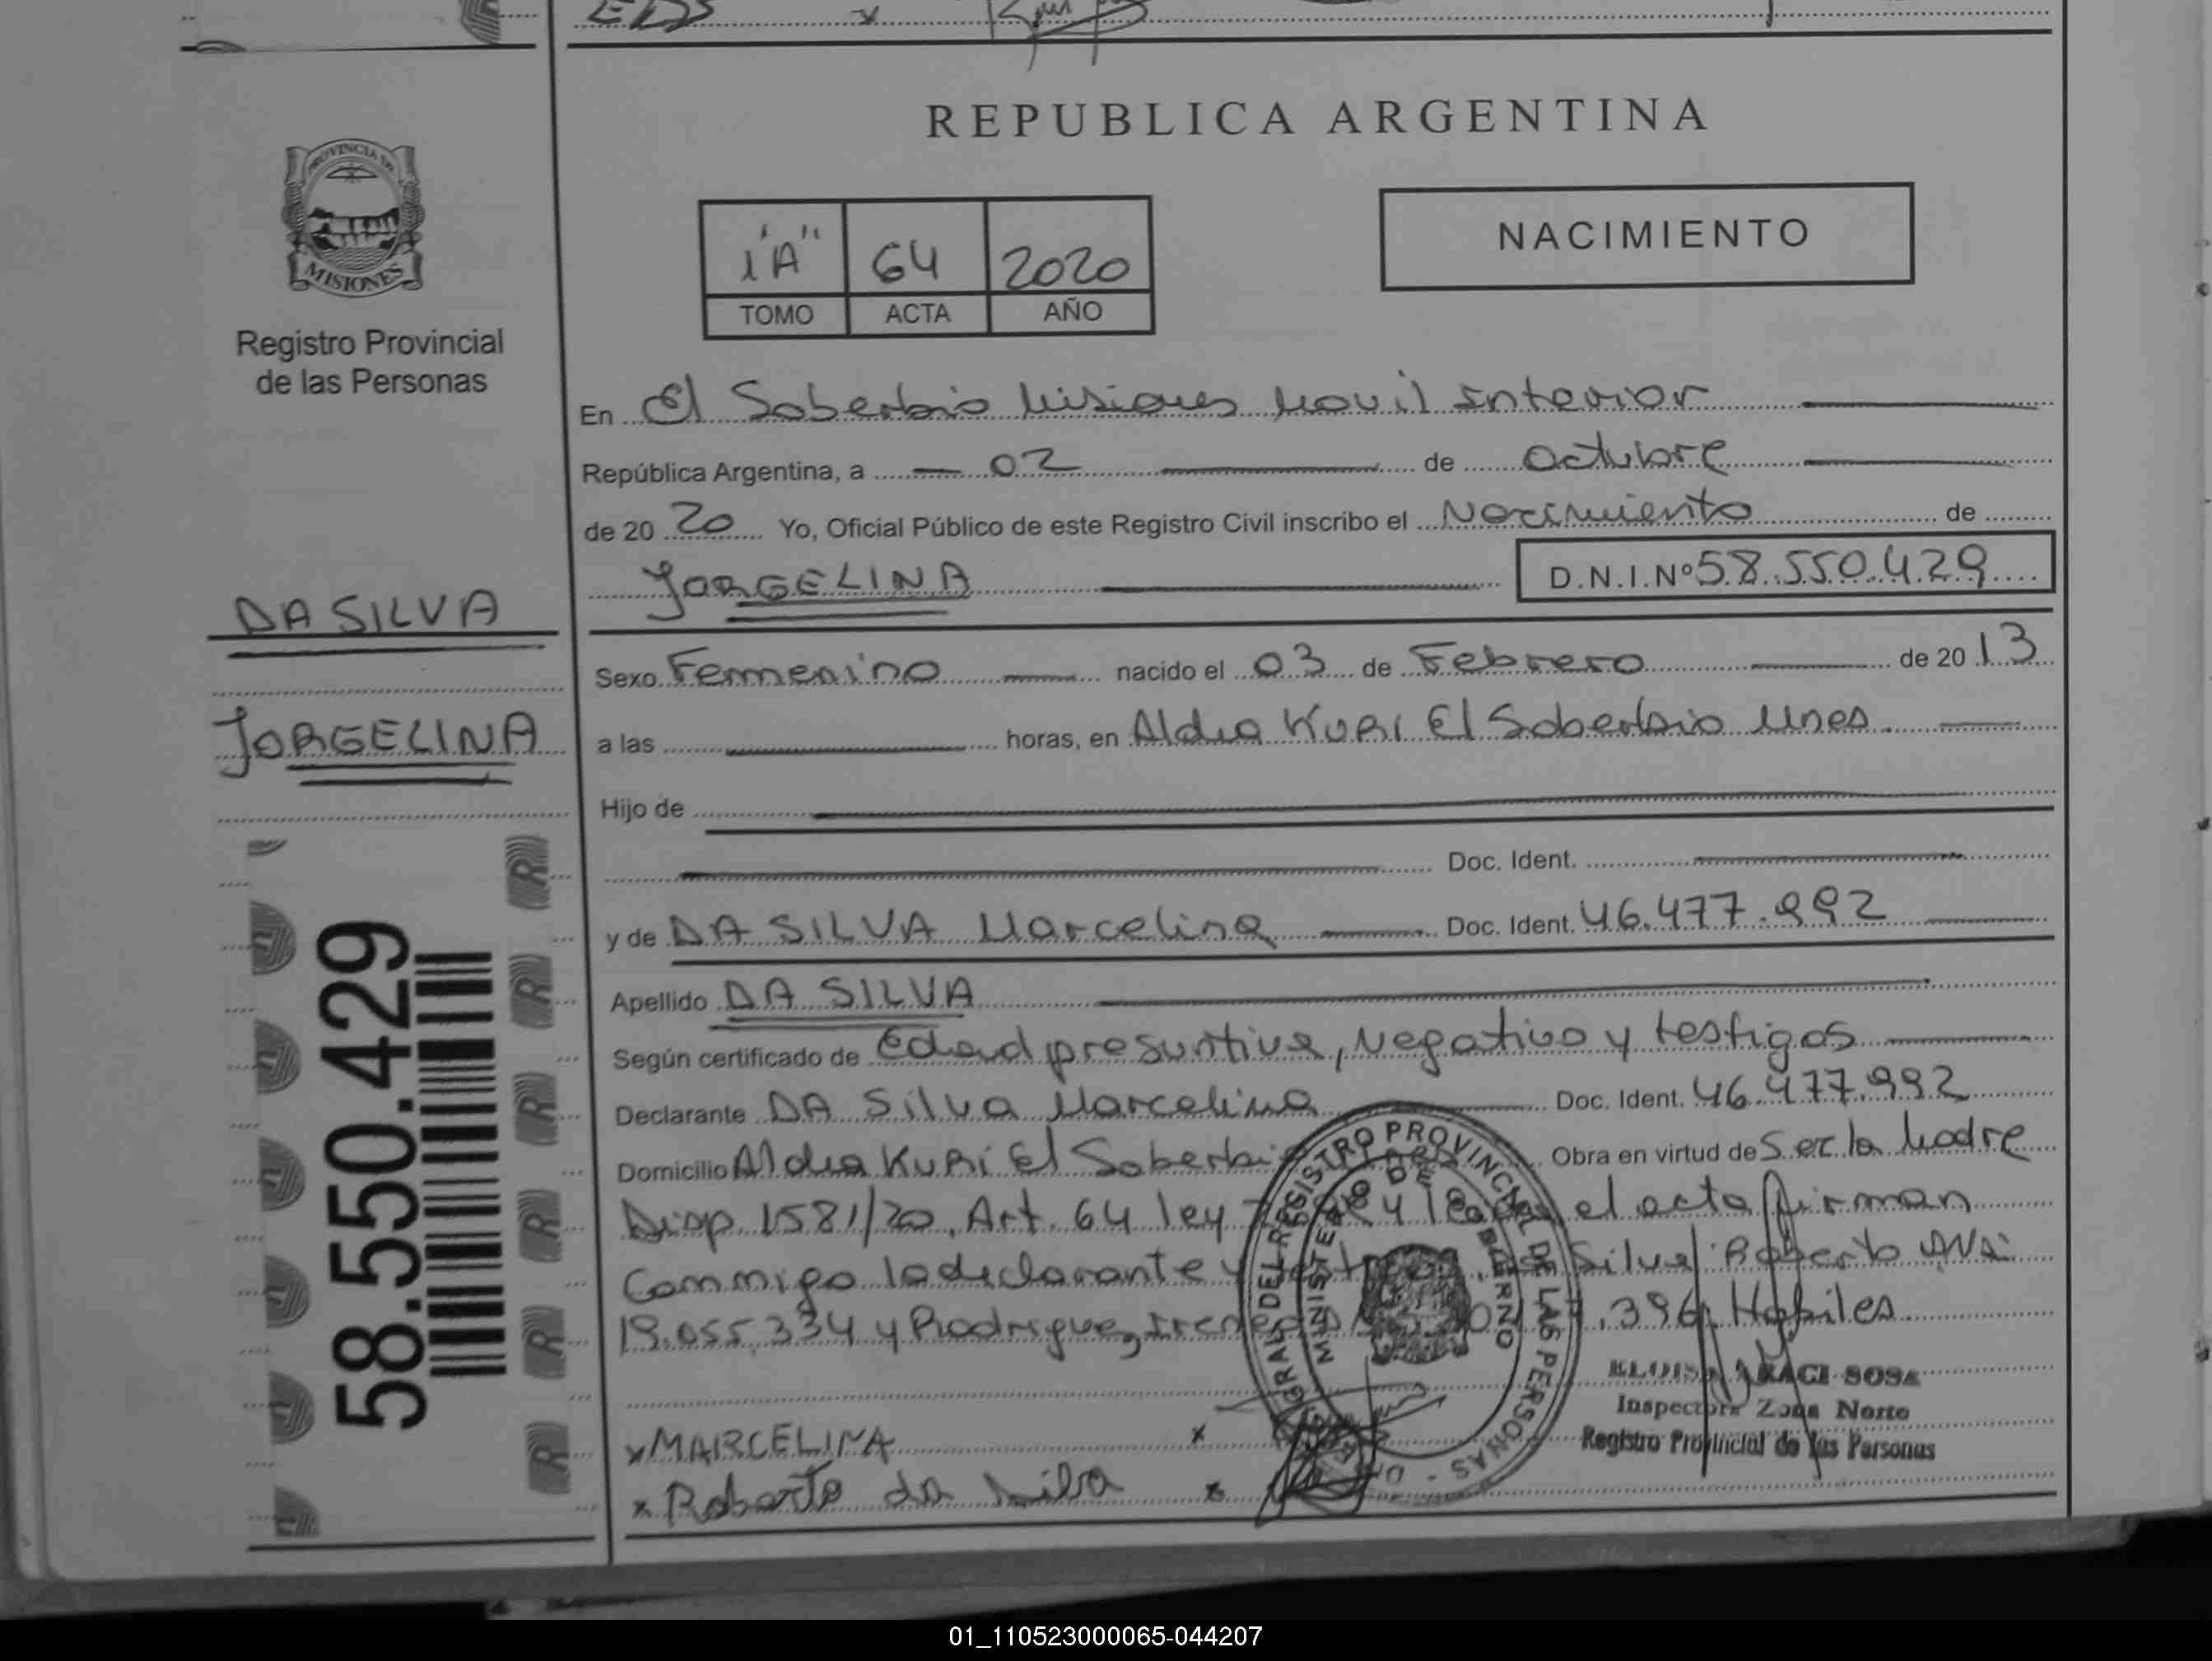 REPUBLICA ARGENTINA
PROVINCIA DE
MISIONES
Registro Provincial
de las Personas
1"A" 64 2020
TOMO ACTA AÑO
NACIMIENTO
En El Soberbio Misiones Movil Interior
República Argentina, a 02 de Octubre
de 20 20 Yo, Oficial Público de este Registro Civil inscribo el Nacimiento de
JORGELINA D.N.I.Nº 58.550.429
DA SILVA
JORGELINA
58.550.429
Sexo Femenino nacido el 03 de Febrero de 20 13
a las horas, en Aldea KURI El Soberbio Mnes
Hijo de
Doc. Ident.
y de DA SILVA Marcelina Doc. Ident. 46.477.992
Apellido DA SILVA
Según certificado de Edad presuntiva, Negativo y testigos
Declarante DA Silva Marcelina Doc. Ident. 46.477.992
Domicilio Aldea KURI El Soberbio Obra en virtud de Ser la Madre
Disp 1581/20, Art. 64 ley el acta firman
Conmigo la declarante y Silva Roberto DNI
19.055.334 y Rodriguez, Irene .396 Habiles
REGISTRO PROVINCIAL DE LAS PERSONAS
MINISTERIO DE GOBIERNO
ARACI SOSA
Inspectora Zona Norte
Registro Provincial de las Personas
x MARCELINA x
x Roberto da Silva x
01_110523000065-044207